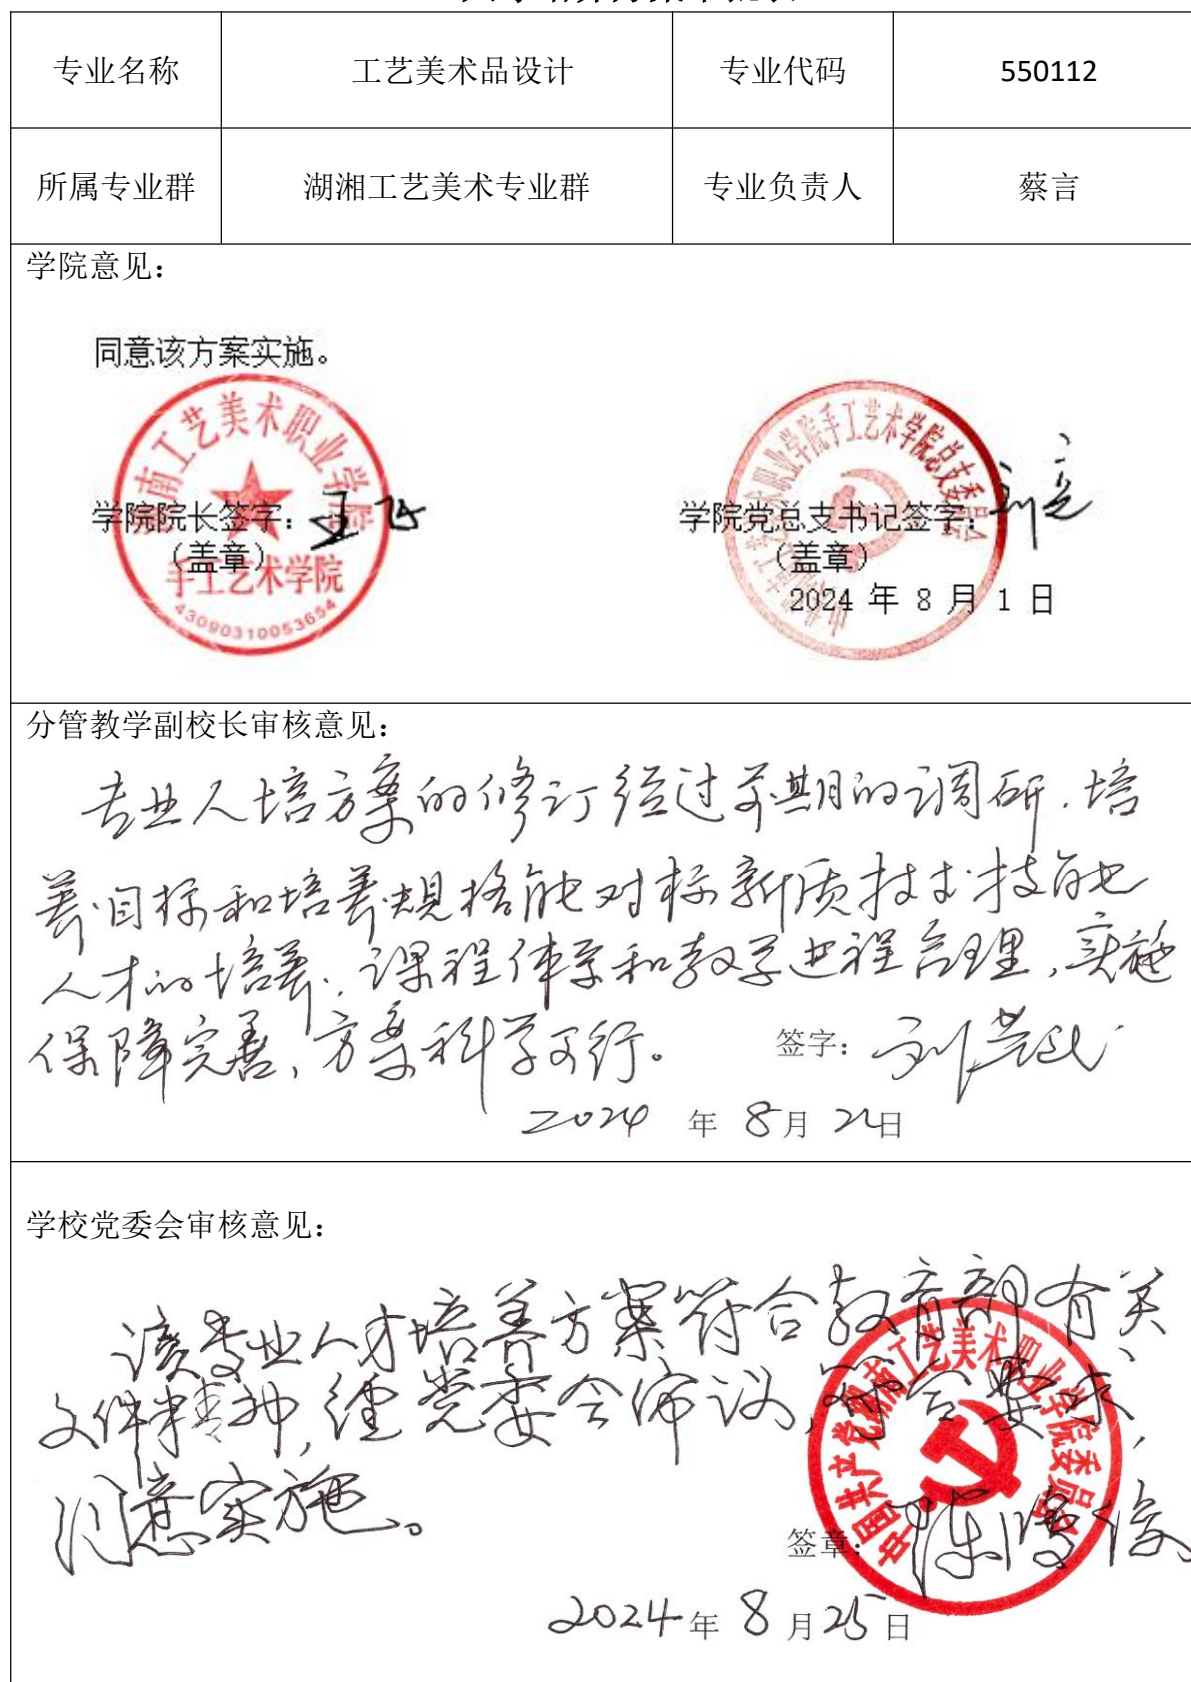 专业名称 工艺美术品设计 专业代码 550112
所属专业群 湖湘工艺美术专业群 专业负责人 蔡言
学院意见：
同意该方案实施。
学院院长签字：
（盖章）
手工艺术学院
43090310053654
学院党总支书记签字：
（盖章）
2024 年 8 月 1 日
分管教学副校长审核意见：
专业人培方案的修订经过前期的调研，培
养目标和培养规格能对标新质技术技能
人才的培养，课程体系和教学进程合理，实施
保障完善，方案科学可行。
签字：
2024 年 8月 日
学校党委会审核意见：
该专业人才培养方案符合教育部有关
文件精神，经党委会审议，符合要求，
同意实施。
中国共产党湖南工艺美术职业学院委员会
签章：
2024年 8 月25日